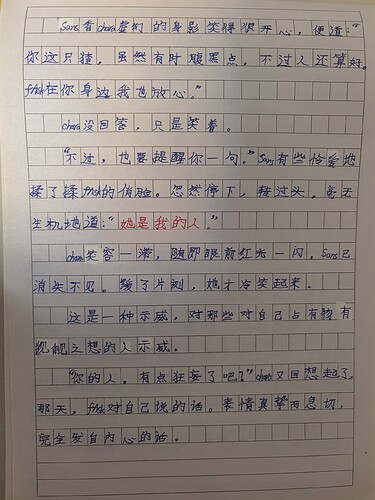 Sans看chara虚幻的身影笑得很开心，便道：“
你这只猹，虽然有时腹黑点，不过人还算好。
frisk在你身边我也放心。”
chara没回答，只是笑着。
“不过，也要提醒你一句。”Sans有些怜爱地
揉了揉frisk的俏脸。忽然停下，转过头，毫无
生机地道：“她是我的人。”
chara笑容一滞，随即眼前红光一闪，Sans已
消失不见。缓了片刻，她才冷笑起来。
这是一种示威，对那些对自己占有物有
觊觎之想的人示威。
“你的人。有点狂妄了吧？”chara又回想起了，
那天，frisk对自己说的话。表情真挚而急切，
完全发自内心的话。